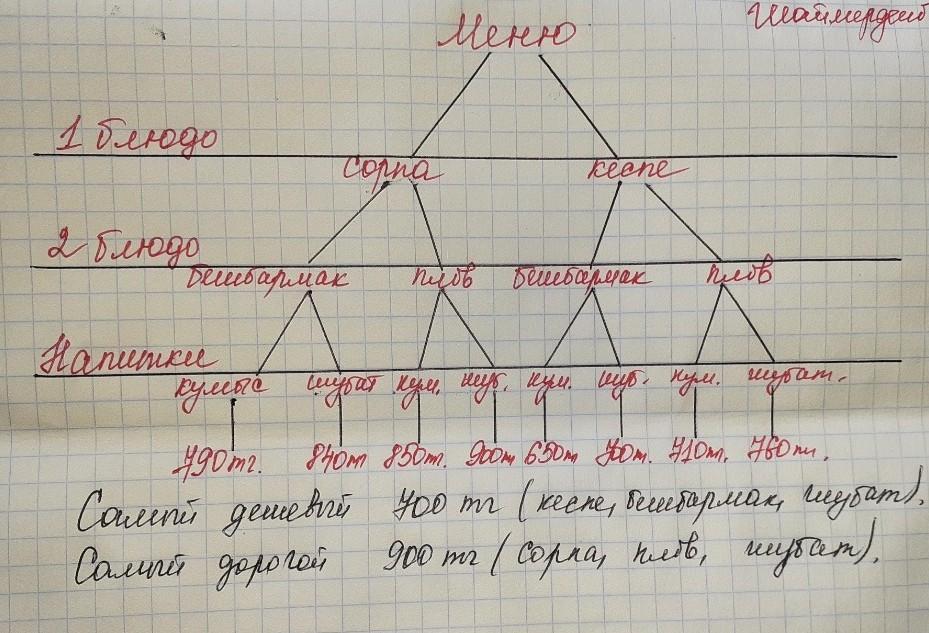 Меню
1 блюдо
сорпа кеспе
2 блюдо
бешбармак плов бешбармак плов
Напитки
кумыс шубат кум. шуб. кум. шуб. кум. шубат.
790тг. 840т 850т. 900т 650т 700т. 710т. 760тг.
Самый дешевый 700 тг (кеспе, бешбармак, шубат).
Самый дорогой 900 тг (сорпа, плов, шубат).